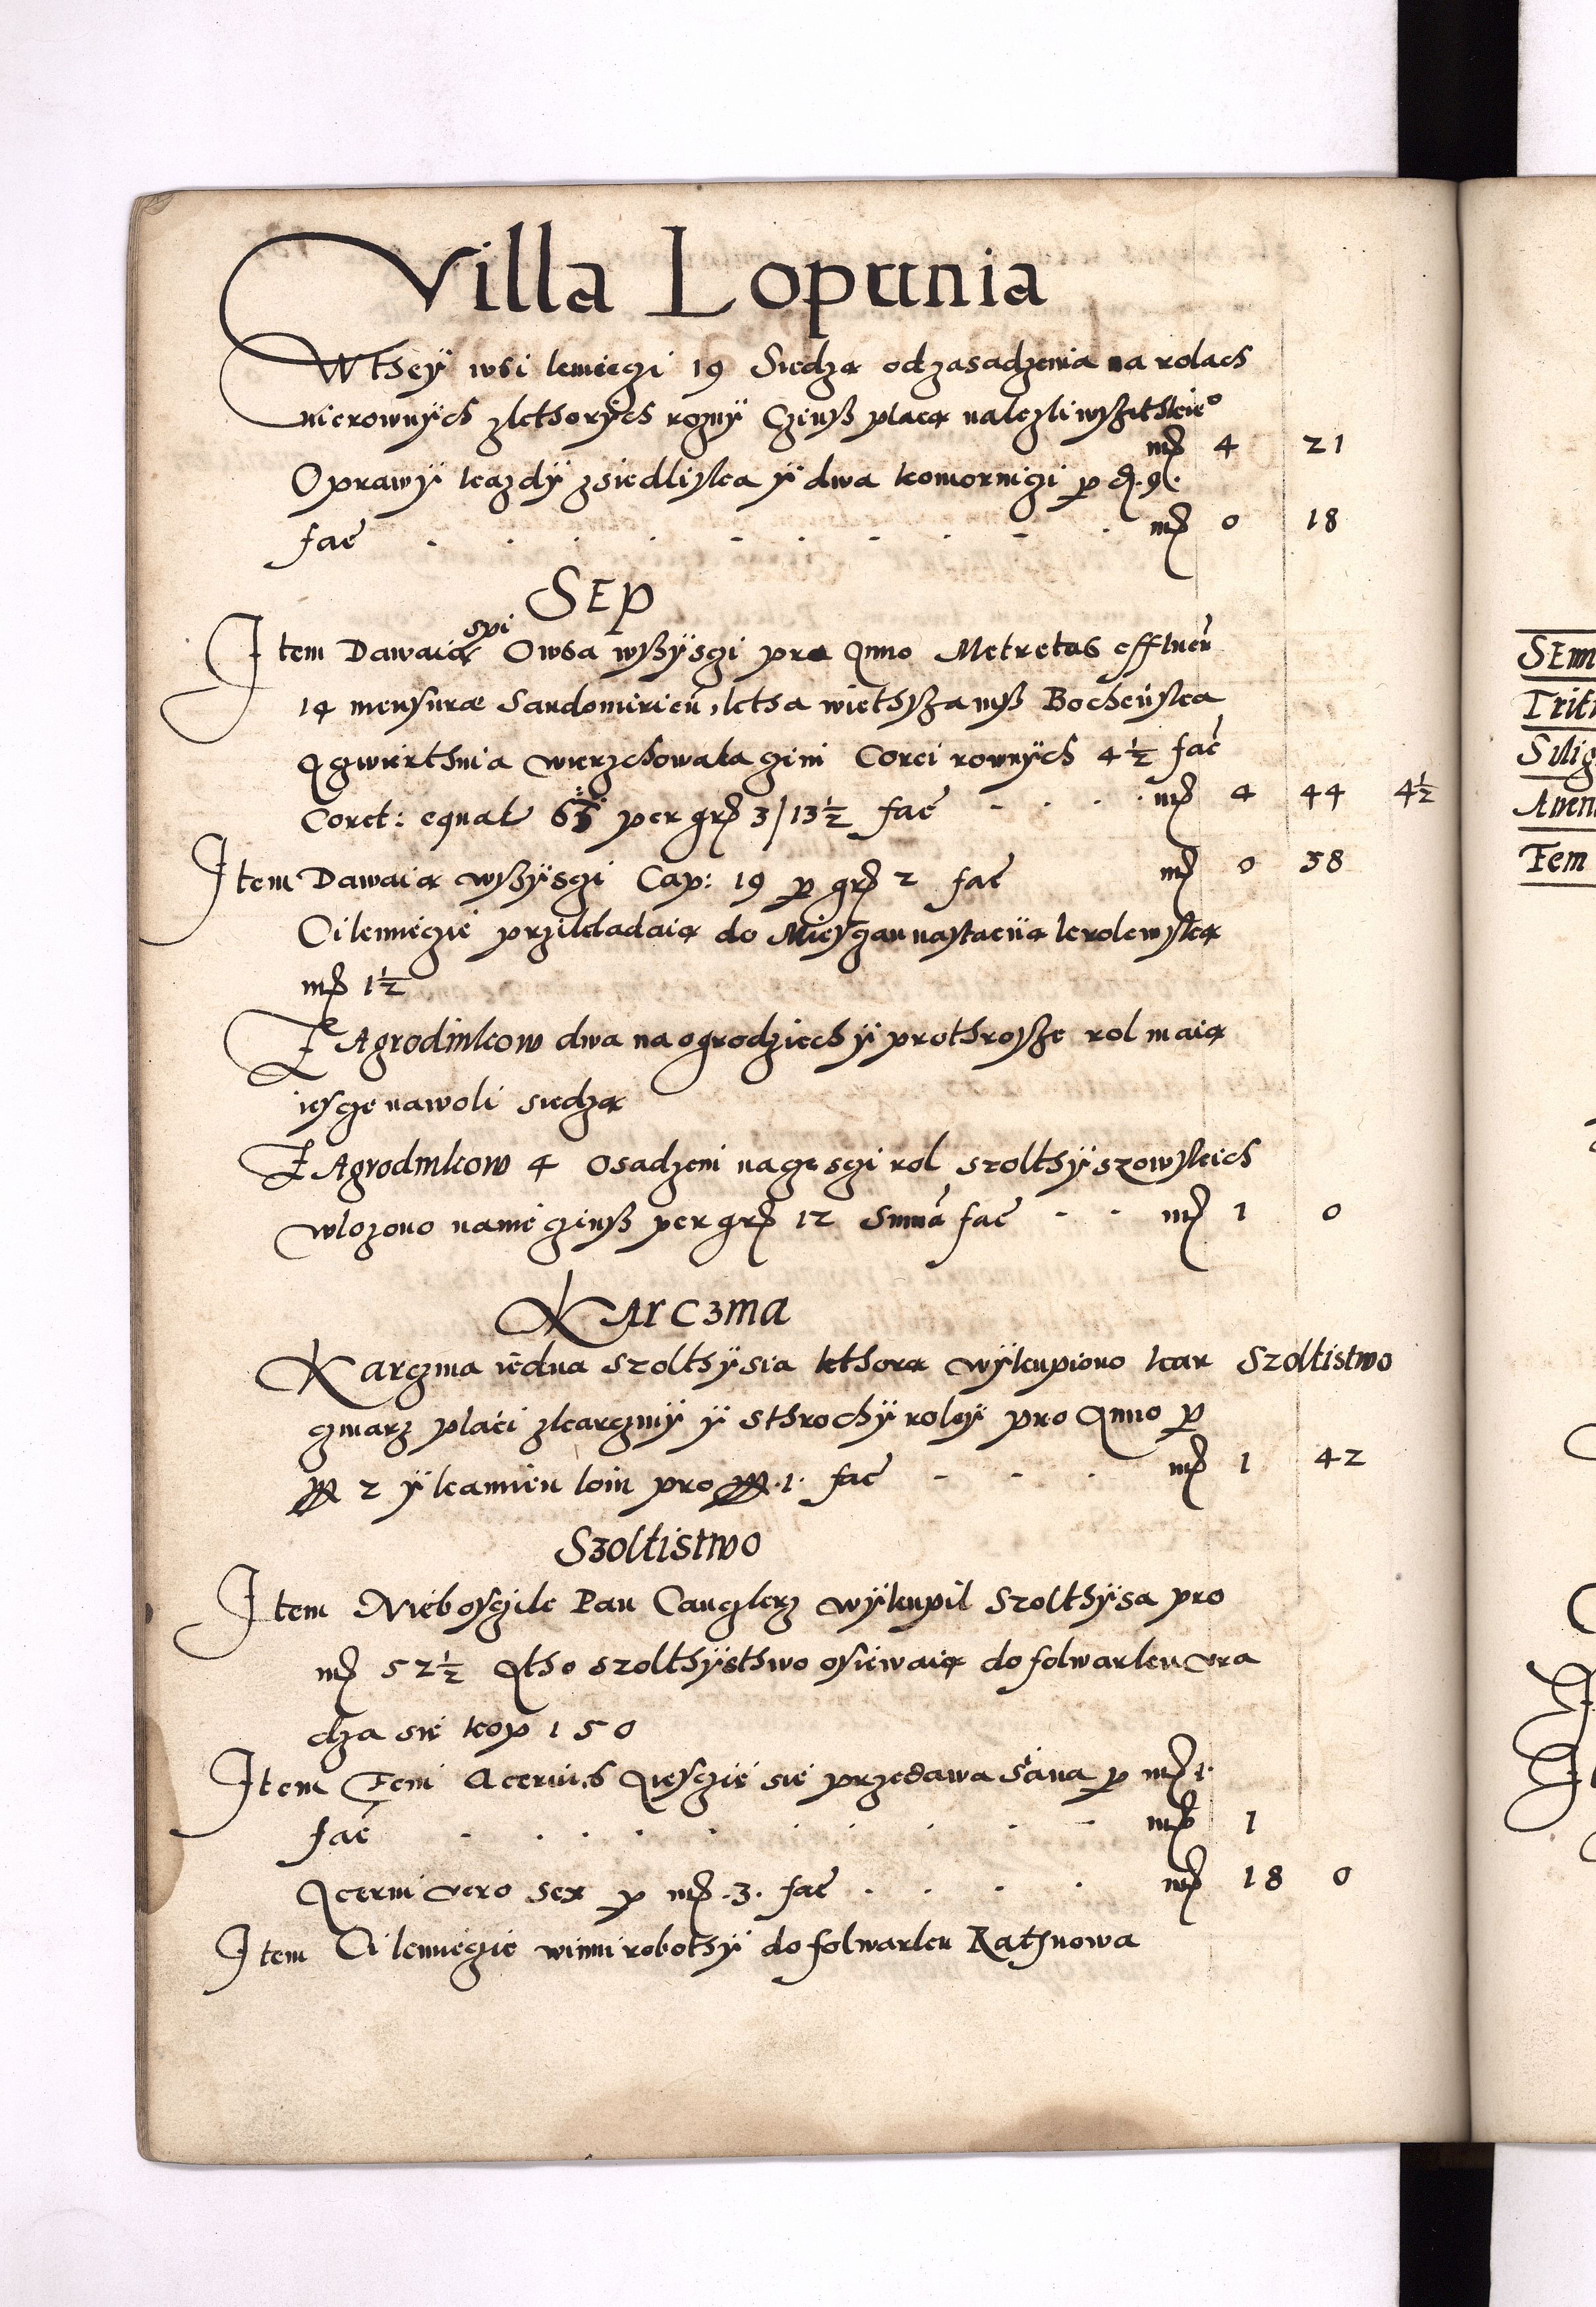 Villa Lopunia
W They wsi kmieczi 19 Siedzą od zasadzenia na rolach
nierownÿch z kthorÿch roznÿ Czinß placą nalezli wszitkie°
mr̃ 4 21
Oprawÿ kazdÿ z siedliska ÿ dwa komornigi p
fac̃ . . . . . . . . . . mr̃ 0 18
SEP
Item Dawaią spi Owsa wßÿsgi pro Anno Metretas effluen̄
14 mensuræ Sandomirien̄, ktha wiethsza niß Bochenska
A czwierthnia wierzchowata czini Corci rownÿch 4½ fac̃
Coret: equat per gr̃ 3/13½ fac̃ . . . . mr̃ 4 44 4½
Item Dawaią wßÿsgi Cap: 19 p gr̃ 2 fac̃ mr̃ 0 38
Ci kmieczie przikladaią do Mieszan na staciią krolewską
mr̃ 1½
ZAgrodnikow dwa na ogrodziech ÿ pro throsze rol maią
iescze na woli siedzą
ZAgrodnikow 4 Osadzeni na czesgi rol szolthÿszowskich
wlozono na nie czinß per gr̃ 12 Sum̄a fac̃ . . mr̃ 1 0
KArczma
Karczma iedna Szolthÿsia kthorą wÿkupiono kar Szoltistwo
czmarz placi z karczmÿ ÿ sthrochÿ roleÿ pro Anno p
2 ÿ kamien loiu pro .1. fac̃ . . . mr̃ 1 42
Szoltistwo
Item Niebosczik Pan Canczlerz wÿkupil Szolthÿsa pro
mr̃ 52½ A tho szolthÿsthwo osiewaią do folwarku vra
dza sie kop 150
Item Feni Acervus Aiesczie sie przedawa Siana p mr̃ 1.
fac̃ . . . . . . . . . . mr̃ 1
Acervi vero sex p mr̃ .3. fac̃ . . . . mr̃ 18 0
Item Ci kmieczie winni robothÿ do folwarku Rathnowa
SEm
Trit
Silig
Aven
Fem